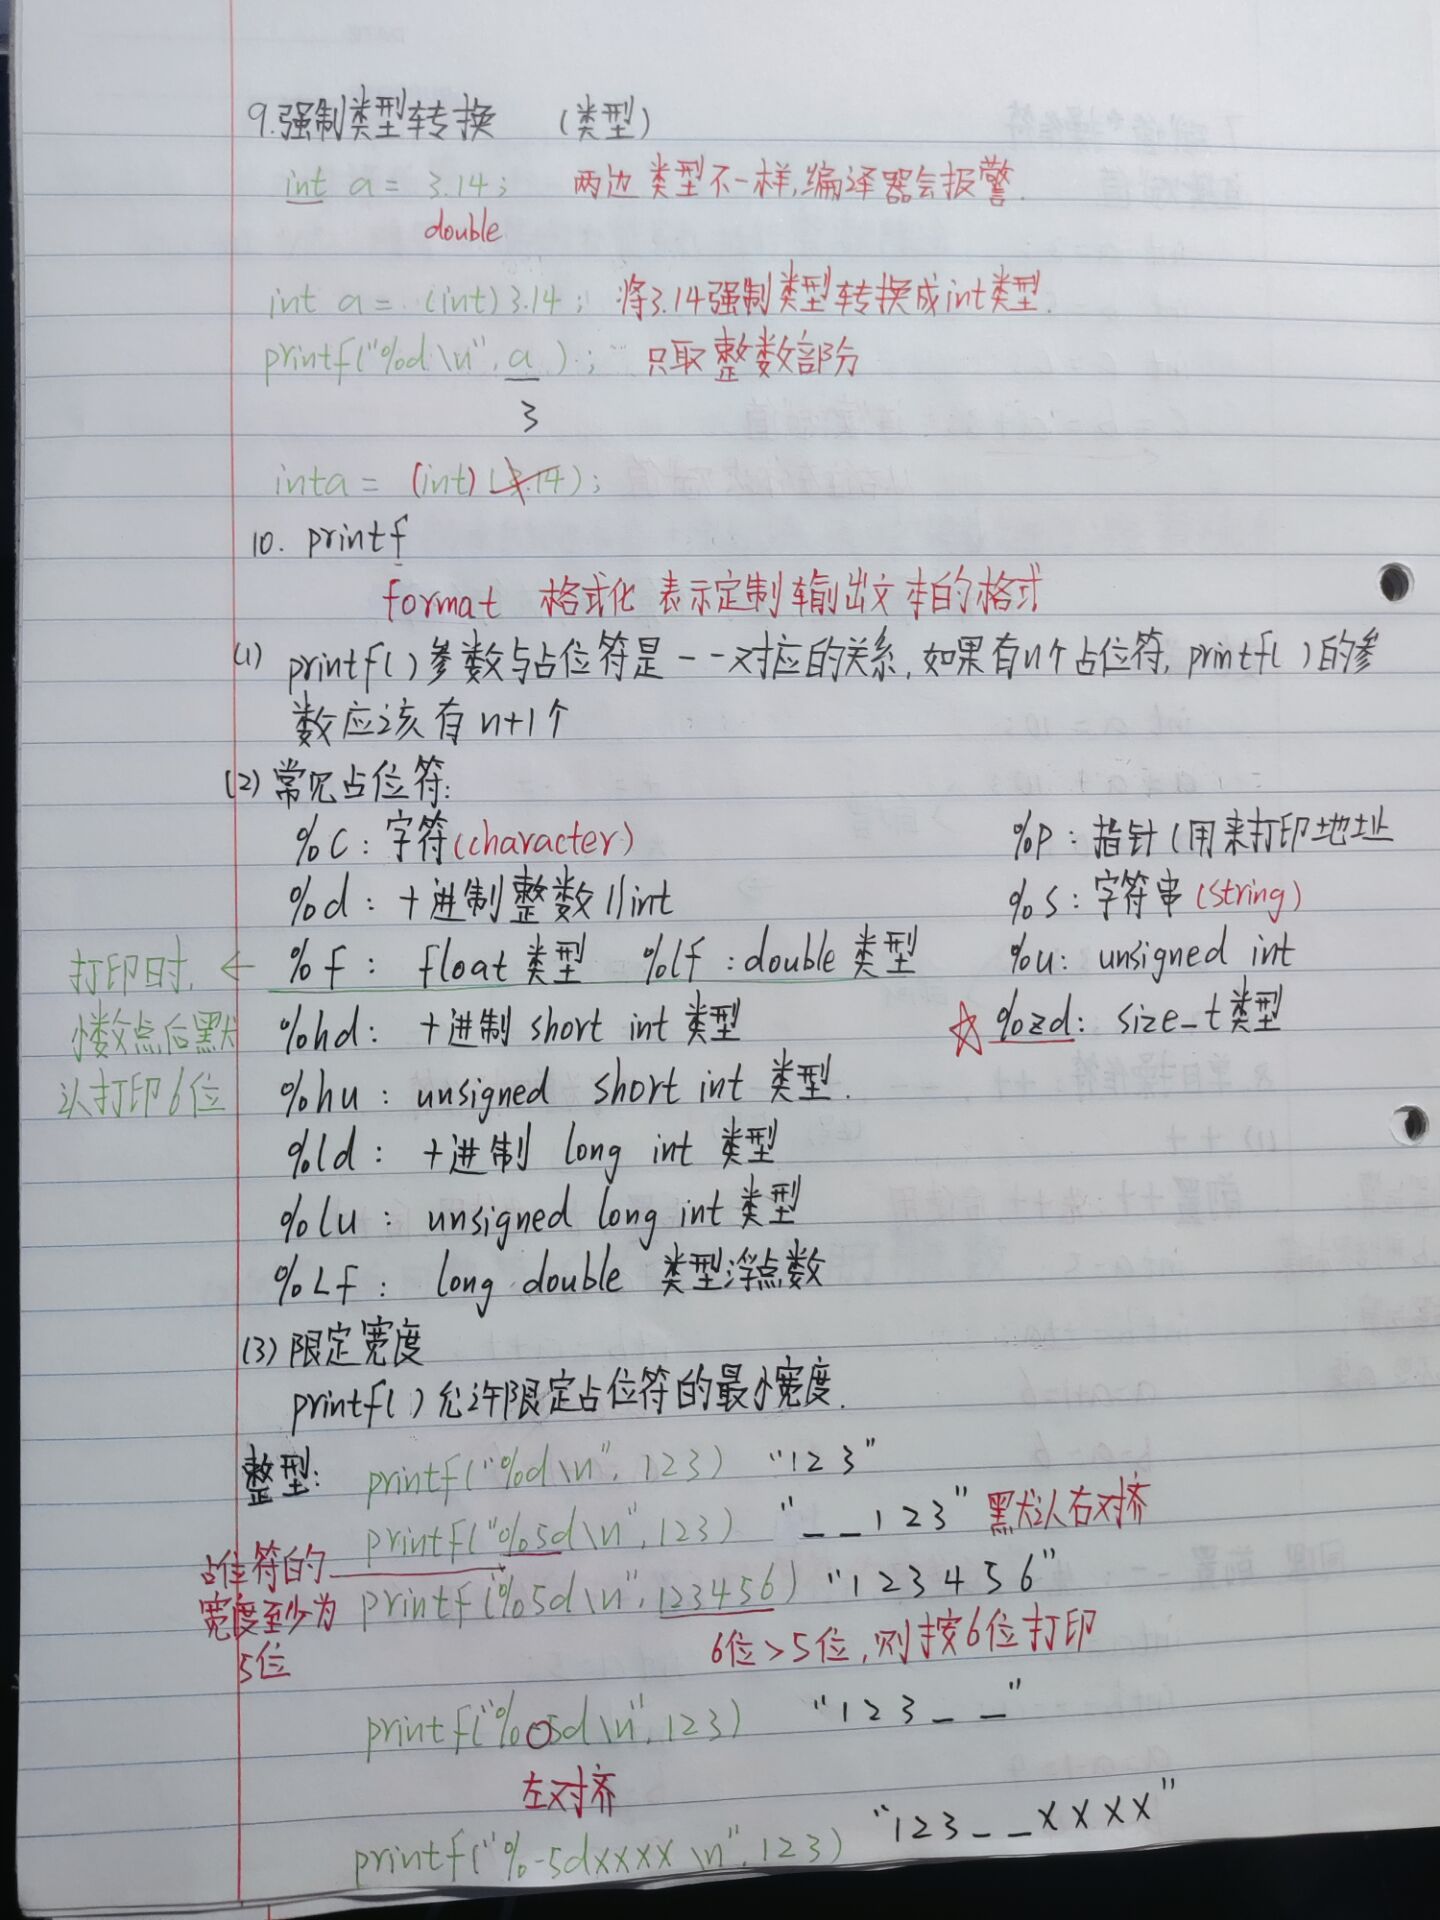 9.强制类型转换 (类型)
int a = 3.14; 两边类型不一样,编译器会报警.
double
int a = (int)3.14; 将3.14强制类型转换成int类型.
printf("%d\n",a); 只取整数部分
3
int a = (int)(3.14);
10. printf
format 格式化 表示定制输出文本的格式
(1) printf()参数与占位符是一一对应的关系,如果有n个占位符,printf()的参
数应该有n+1个
(2)常见占位符:
%c:字符(character) %p:指针(用来打印地址
%d:十进制整数//int %s:字符串(string)
打印时, ← %f: float类型 %lf:double类型 %u: unsigned int
小数点后默 %hd: 十进制 short int 类型 ☆ %zd: size_t类型
认打印6位 %hu: unsigned short int 类型.
%ld: 十进制 long int 类型
%lu: unsigned long int 类型
%Lf: long double 类型浮点数
(3)限定宽度
printf()允许限定占位符的最小宽度.
整型: printf("%d\n",123) "123"
printf("%5d\n",123) "__123" 默认右对齐
占位符的 printf("%5d\n",123456) "123456"
宽度至少为
5位 6位>5位,则按6位打印
printf("%-5d\n",123) "123__"
左对齐
printf("%-5dxxxx\n",123) "123__xxxx"